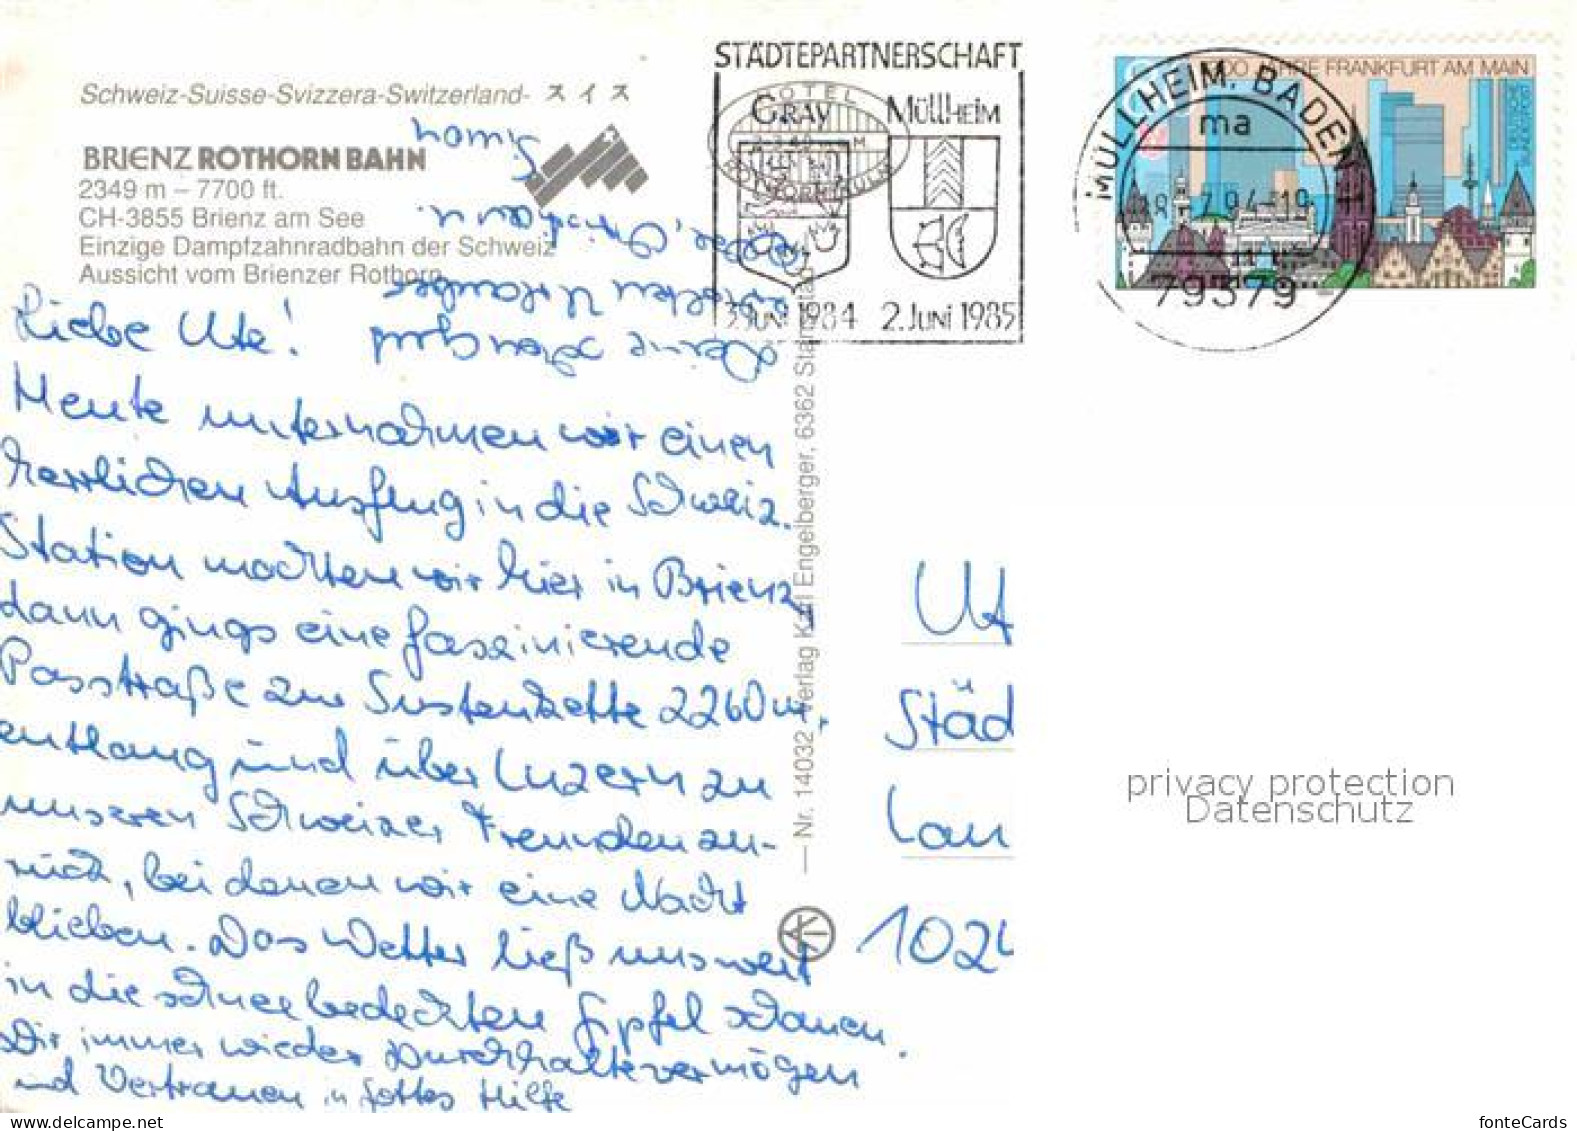 Schweiz-Suisse-Svizzera-Switzerland- スイス
BRIENZ ROTHORN BAHN
2349 m – 7700 ft.
CH-3855 Brienz am See
Einzige Dampfzahnradbahn der Schweiz
Aussicht vom Brienzer Rothorn
STÄDTEPARTNERSCHAFT
GRAY MÜLLHEIM
3. JUNI 1984 2. JUNI 1985
HOTEL
ROTHORN KULM
MÜLLHEIM, BADEN
ma
79379
JAHRE FRANKFURT AM MAIN
DEUTSCHE BUNDESPOST
Liebe Ute!
Heute unternahmen wir einen
herrlichen Ausflug in die Schweiz.
Station machten wir hier in Brienz,
dann gings eine faszinierende
Passtraße zur Sustenkette 2260m,
entlang und über Luzern zu
unseren Schweizer Freunden zu-
rück, bei denen wir eine Nacht
blieben. Das Wetter ließ uns weit
in die schneebedeckten Gipfel schauen.
Dir immer wieder Durchhaltevermögen
und Vertrauen in Gottes Hilfe
Deine
Urlauber
Simon
— Nr. 14032 - Verlag Karl Engelberger, 6362 Stansstad
Ut
Städ
Lan
102
privacy protection
Datenschutz
delcampe.net
fonteCards